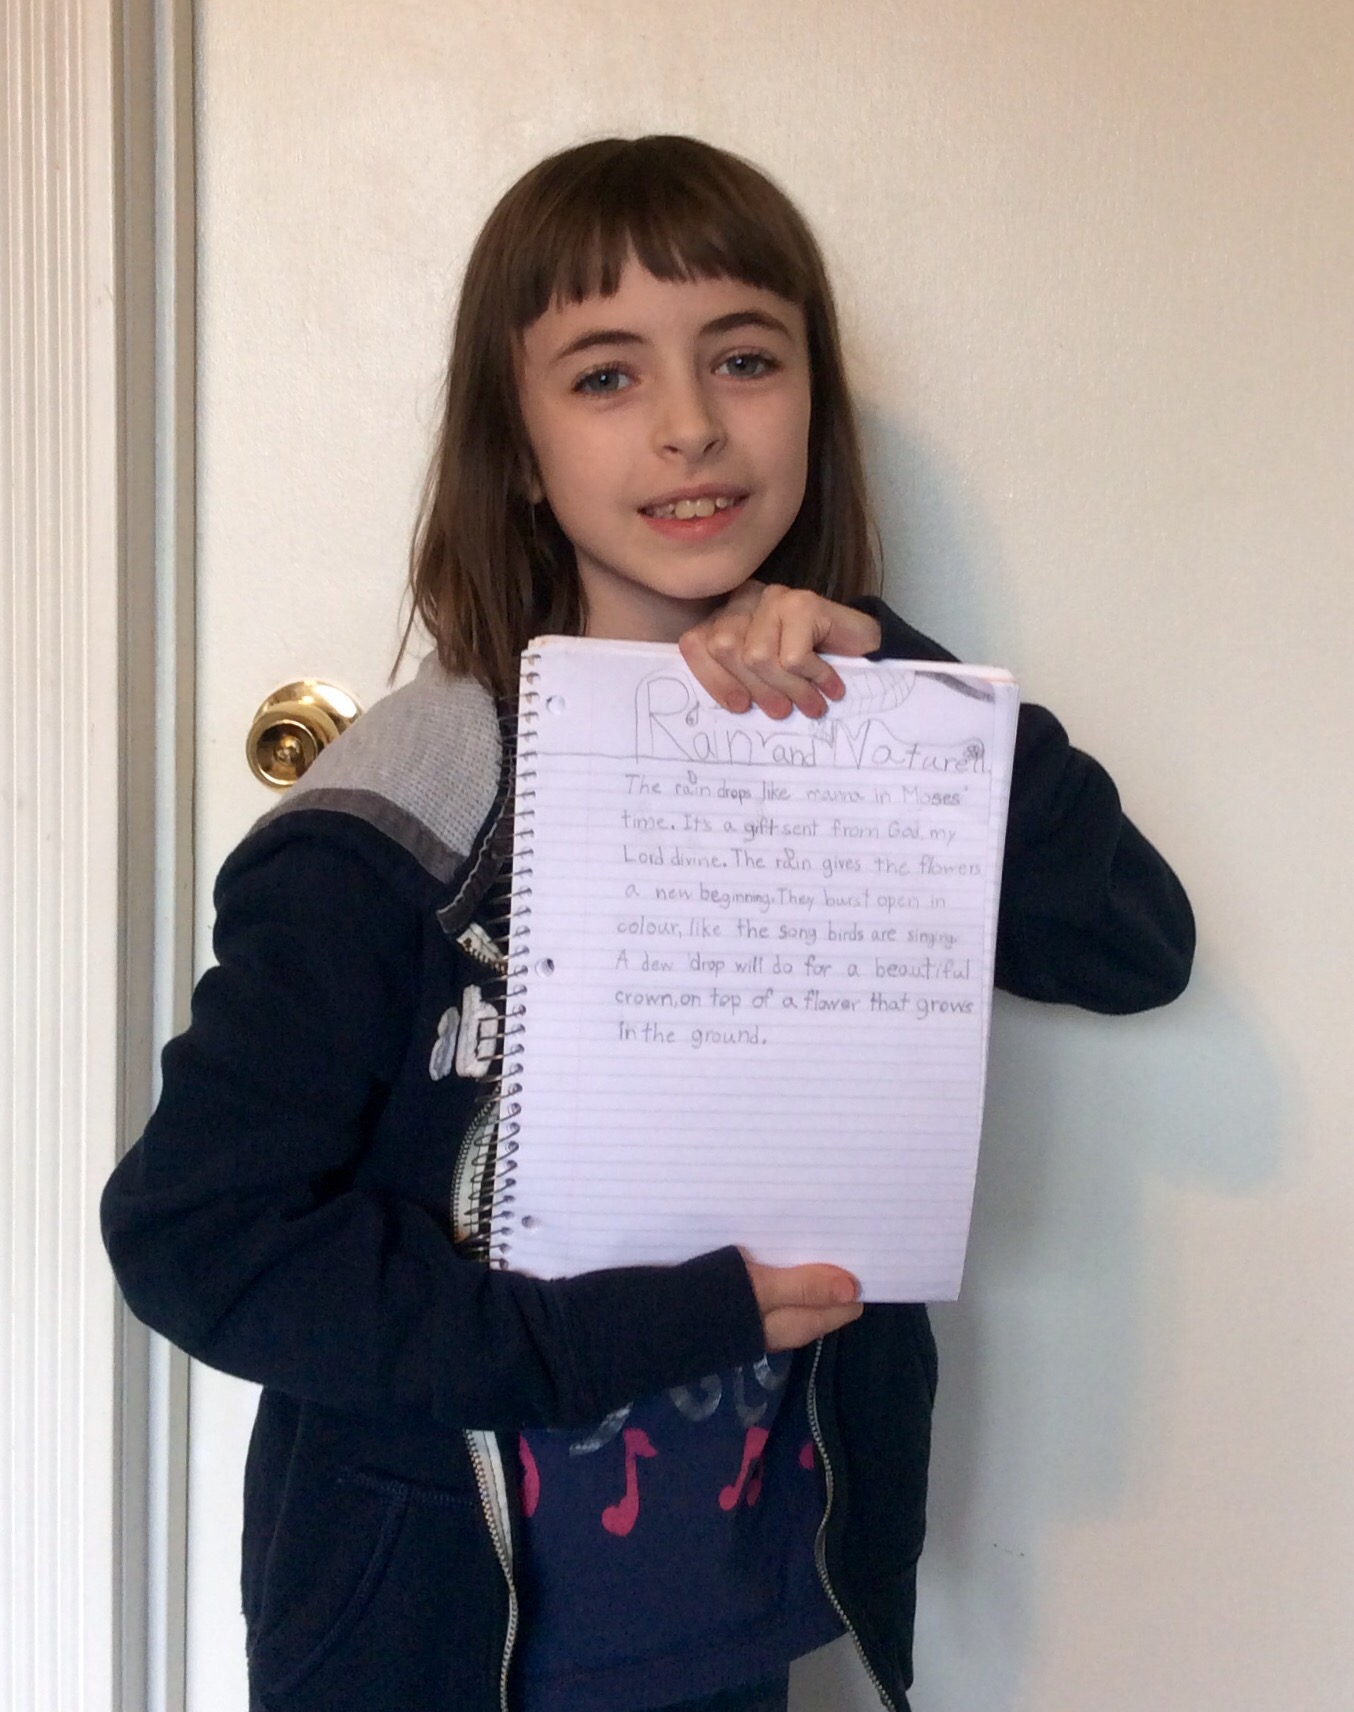 Rain and Nature
The rain drops like manna in Moses'
time. It's a gift sent from God, my
Lord divine. The rain gives the flowers
a new beginning. They burst open in
colour, like the song birds are singing.
A dew drop will do for a beautiful
crown, on top of a flower that grows
in the ground.